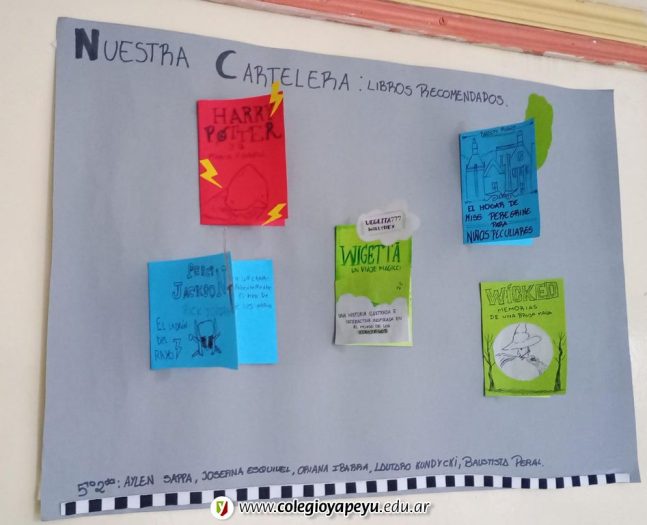 NUESTRA CARTELERA: LIBROS RECOMENDADOS.
HARRY
POTTER
Y LA
EL HOGAR DE
MISS PEREGRINE
PARA
NIÑOS PECULIARES
VEGETTA777
WILLYREX
WIGETTA
UN VIAJE MÁGICO
UNA HISTORIA ILUSTRADA E
INTERACTIVA INSPIRADA EN
EL MUNDO DE LOS
PERCY
JACKSON
RICK
EL LADRÓN
DEL
RAYO
WICKED
MEMORIAS
DE UNA BRUJA MALA
5to 2da: AYLEN SAPPA, JOSEFINA ESQUIVEL, ORIANA IBARRA, LAUTARO KONDYCKI, BAUTISTA PERAL.
www.colegioyapeyu.edu.ar